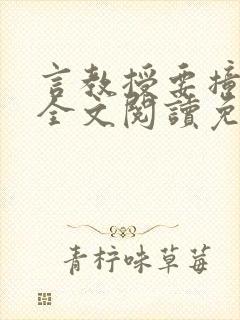 言教授要撞
全文閱讀免
青柠味草莓